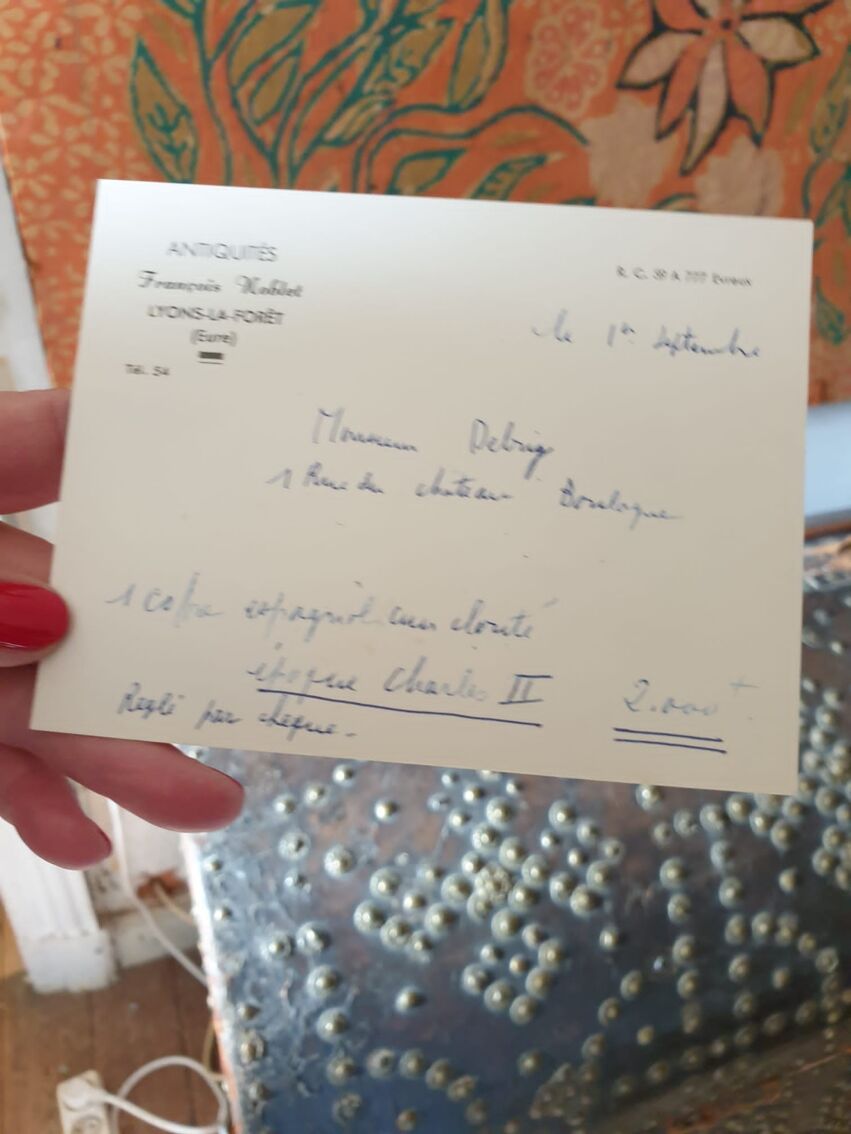 ANTIQUITÉS
François Noblet
LYONS-LA-FORÊT
(Eure)
Tél. 54
R. C. 59 A 777 Evreux
le 1er septembre
Monsieur Debrig
1 Rue du château Boulogne
1 coffre espagnol cuir clouté
époque Charles II 2.000
Reglé par chèque.